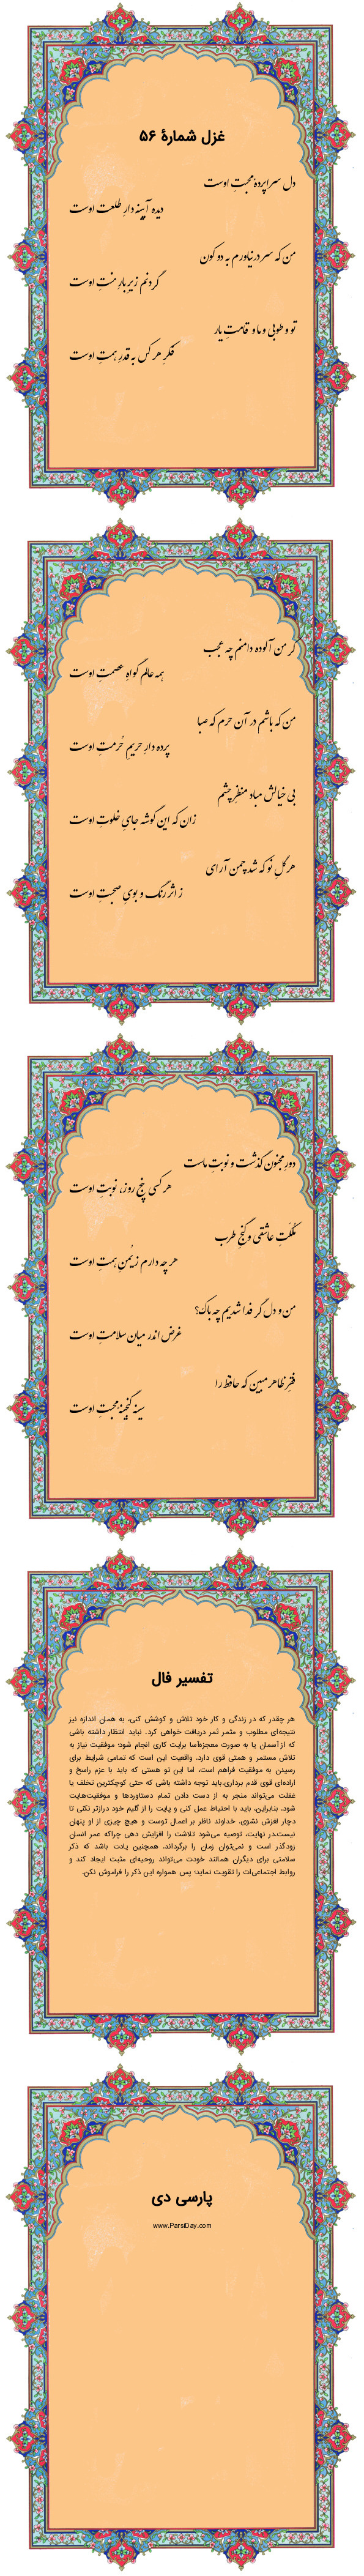 غزل شمارهٔ ۵۶
دل سراپردهٔ محبتِ اوست
دیده آیینه دارِ طلعتِ اوست
من که سر درنیاورم به دو کون
گردنم زیرِ بارِ منتِ اوست
تو و طوبی و ما و قامتِ یار
فکرِ هر کس به قدرِ همتِ اوست
گر من آلوده دامنم چه عجب
همه عالم گواهِ عصمتِ اوست
من که باشم در آن حرم که صبا
پرده دارِ حریمِ حُرمتِ اوست
بی خیالش مباد منظرِ چشم
زان که این گوشه جایِ خلوتِ اوست
هر گلِ نو که شد چمن آرای
ز اثر رنگ و بویِ صحبتِ اوست
دورِ مجنون گذشت و نوبتِ ماست
هر کسی پنج روز، نوبتِ اوست
مُلکَتِ عاشقی و گنجِ طرب
هر چه دارم ز یُمنِ همتِ اوست
من و دل گر فدا شدیم چه باک؟
غرض اندر میان سلامتِ اوست
فقرِ ظاهر مبین که حافظ را
سینه گنجینهٔ محبتِ اوست
تفسیر فال
هر چقدر که در زندگی و کار خود تلاش و کوشش کنی، به همان اندازه نیز
نتیجه‌ای مطلوب و مثمر ثمر دریافت خواهی کرد. نباید انتظار داشته باشی
که از آسمان یا به صورت معجزه‌آسا برایت کاری انجام شود؛ موفقیت نیاز به
تلاش مستمر و همتی قوی دارد. واقعیت این است که تمامی شرایط برای
رسیدن به موفقیت فراهم است، اما این تو هستی که باید با عزم راسخ و
اراده‌ای قوی قدم برداری.باید توجه داشته باشی که حتی کوچکترین تخلف یا
غفلت می‌تواند منجر به از دست دادن تمام دستاوردها و موفقیت‌هایت
شود. بنابراین، باید با احتیاط عمل کنی و پایت را از گلیم خود درازتر نکنی تا
دچار لغزش نشوی. خداوند ناظر بر اعمال توست و هیچ چیزی از او پنهان
نیست.در نهایت، توصیه می‌شود تلاشت را افزایش دهی چراکه عمر انسان
زودگذر است و نمی‌توان زمان را برگرداند. همچنین یادت باشد که ذکر
سلامتی برای دیگران همانند خودت می‌تواند روحیه‌ای مثبت ایجاد کند و
روابط اجتماعی‌ات را تقویت نماید؛ پس همواره این ذکر را فراموش نکن.
پارسی دی
www.ParsiDay.com